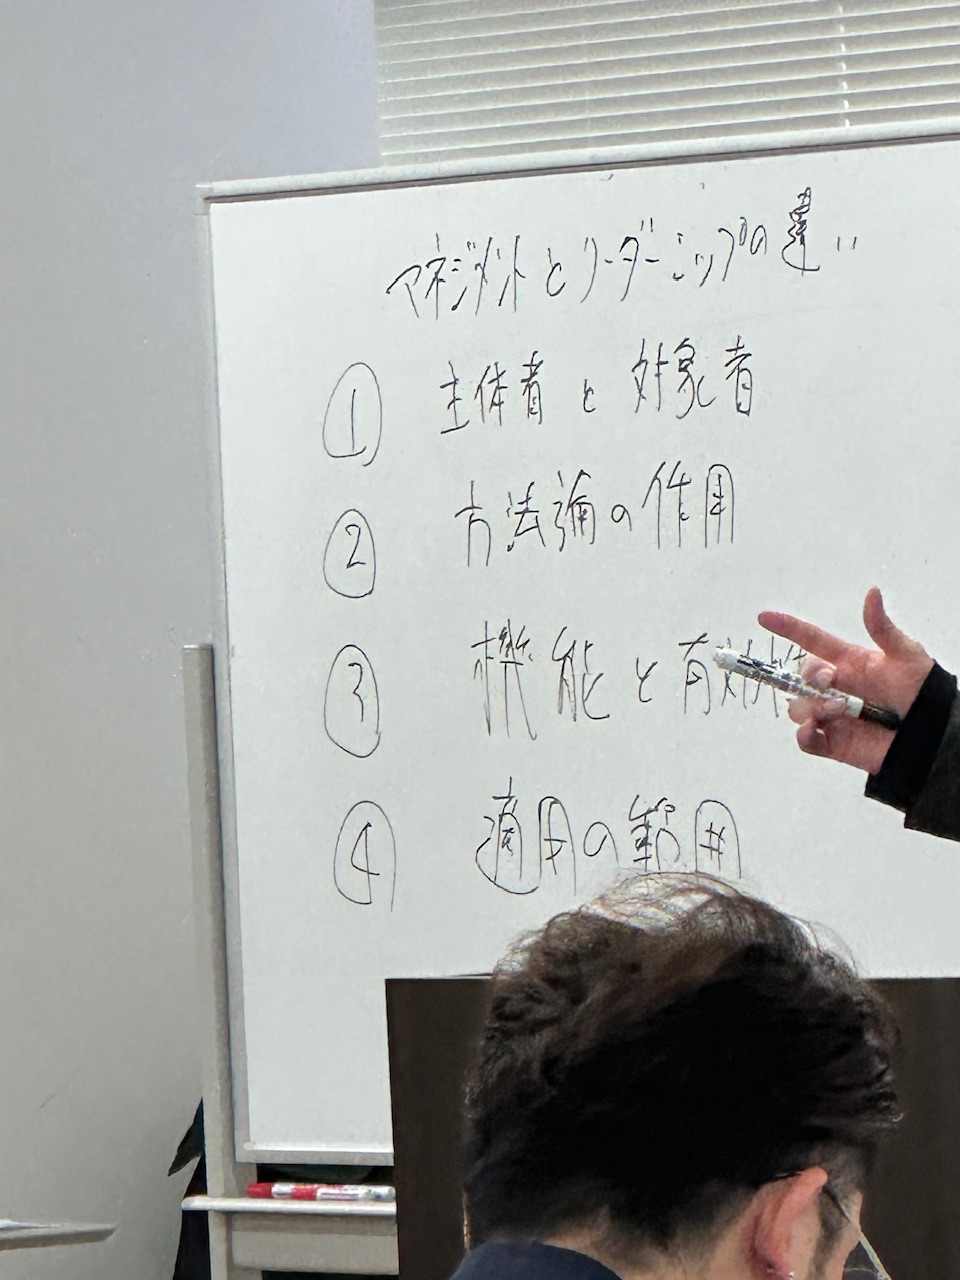 マネジメントとリーダーシップの違い
① 主体者と対象者
② 方法論の作用
③ 機能と有効性
④ 適用の範囲